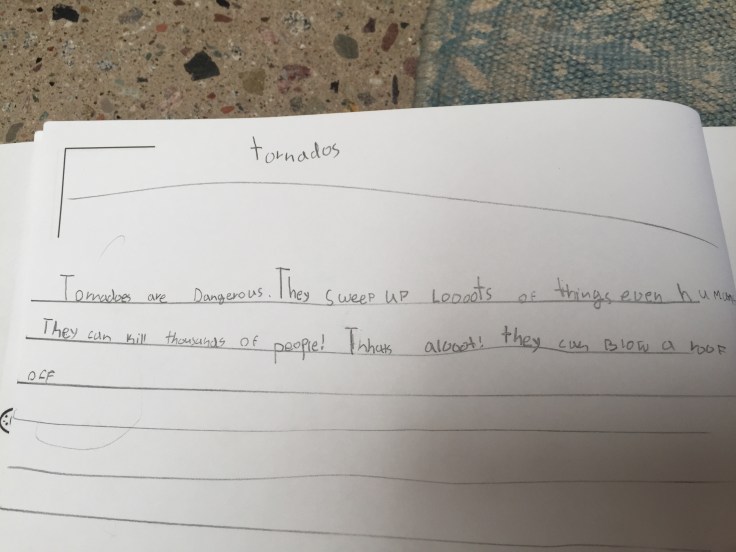 tornados
Tornadoes are Dangerous. They sweep up Looools of things even human
They can kill thousands of people! Thhats alooot! they can Blow a roof
off